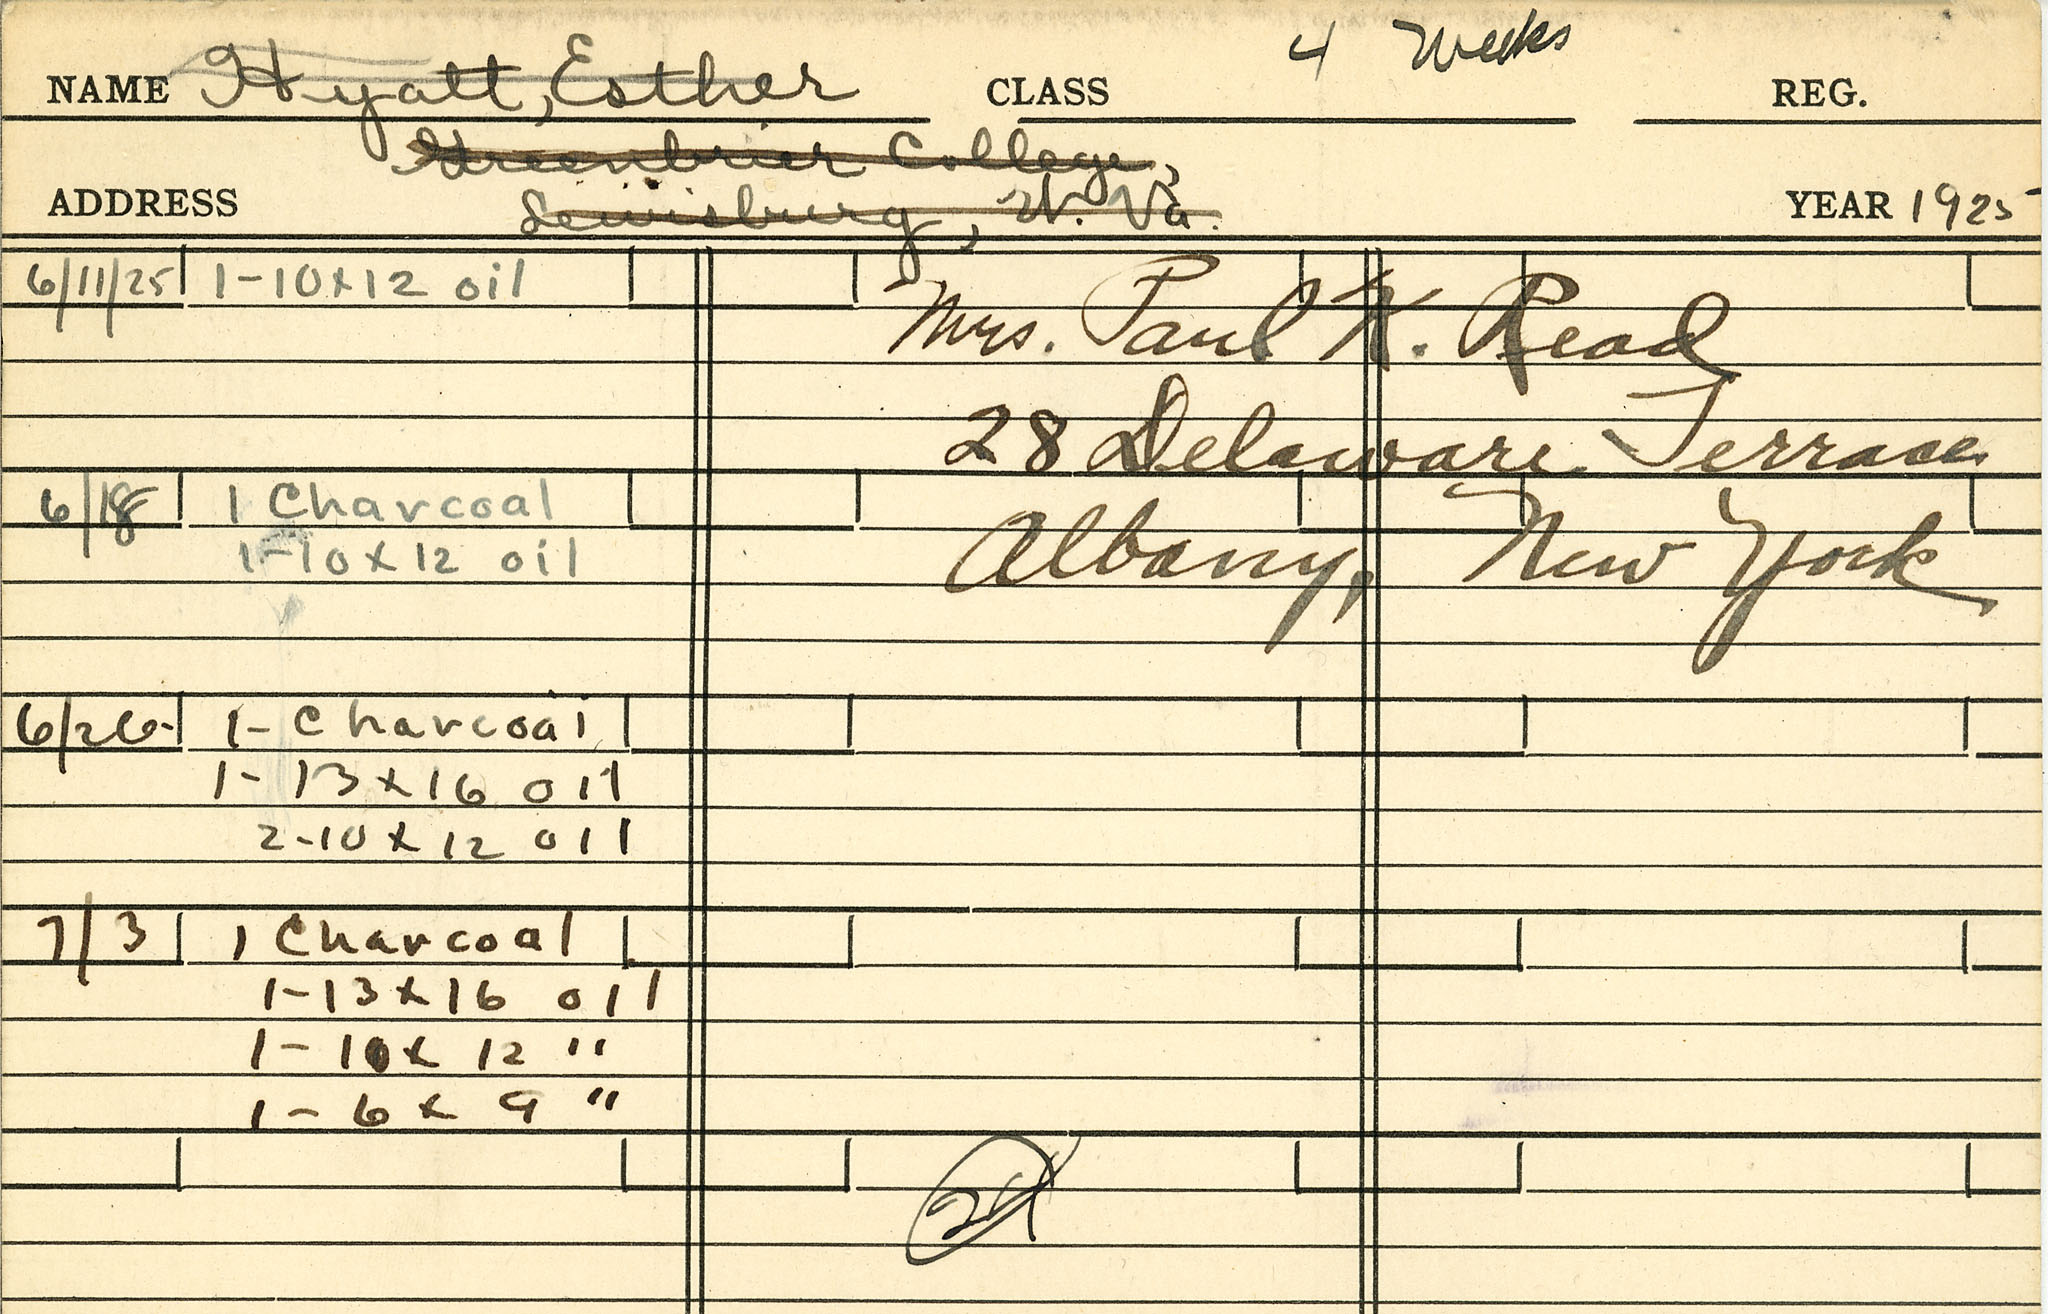 NAME Hyatt, Esther CLASS 4 Weeks REG.
Greenbrier College,
ADDRESS Lewisburg, W. Va. YEAR 1925
6/11/25 1-10x12 oil
Mrs. Paul K. Read
28 Delaware Terrace
6/18 1 Charcoal
Albany, New York
1-10x12 oil
6/26- 1- Charcoal
1-13x16 oil
2-10x12 oil
7/3 1 Charcoal
1-13x16 oil
1-10x12 "
1-6x9 "